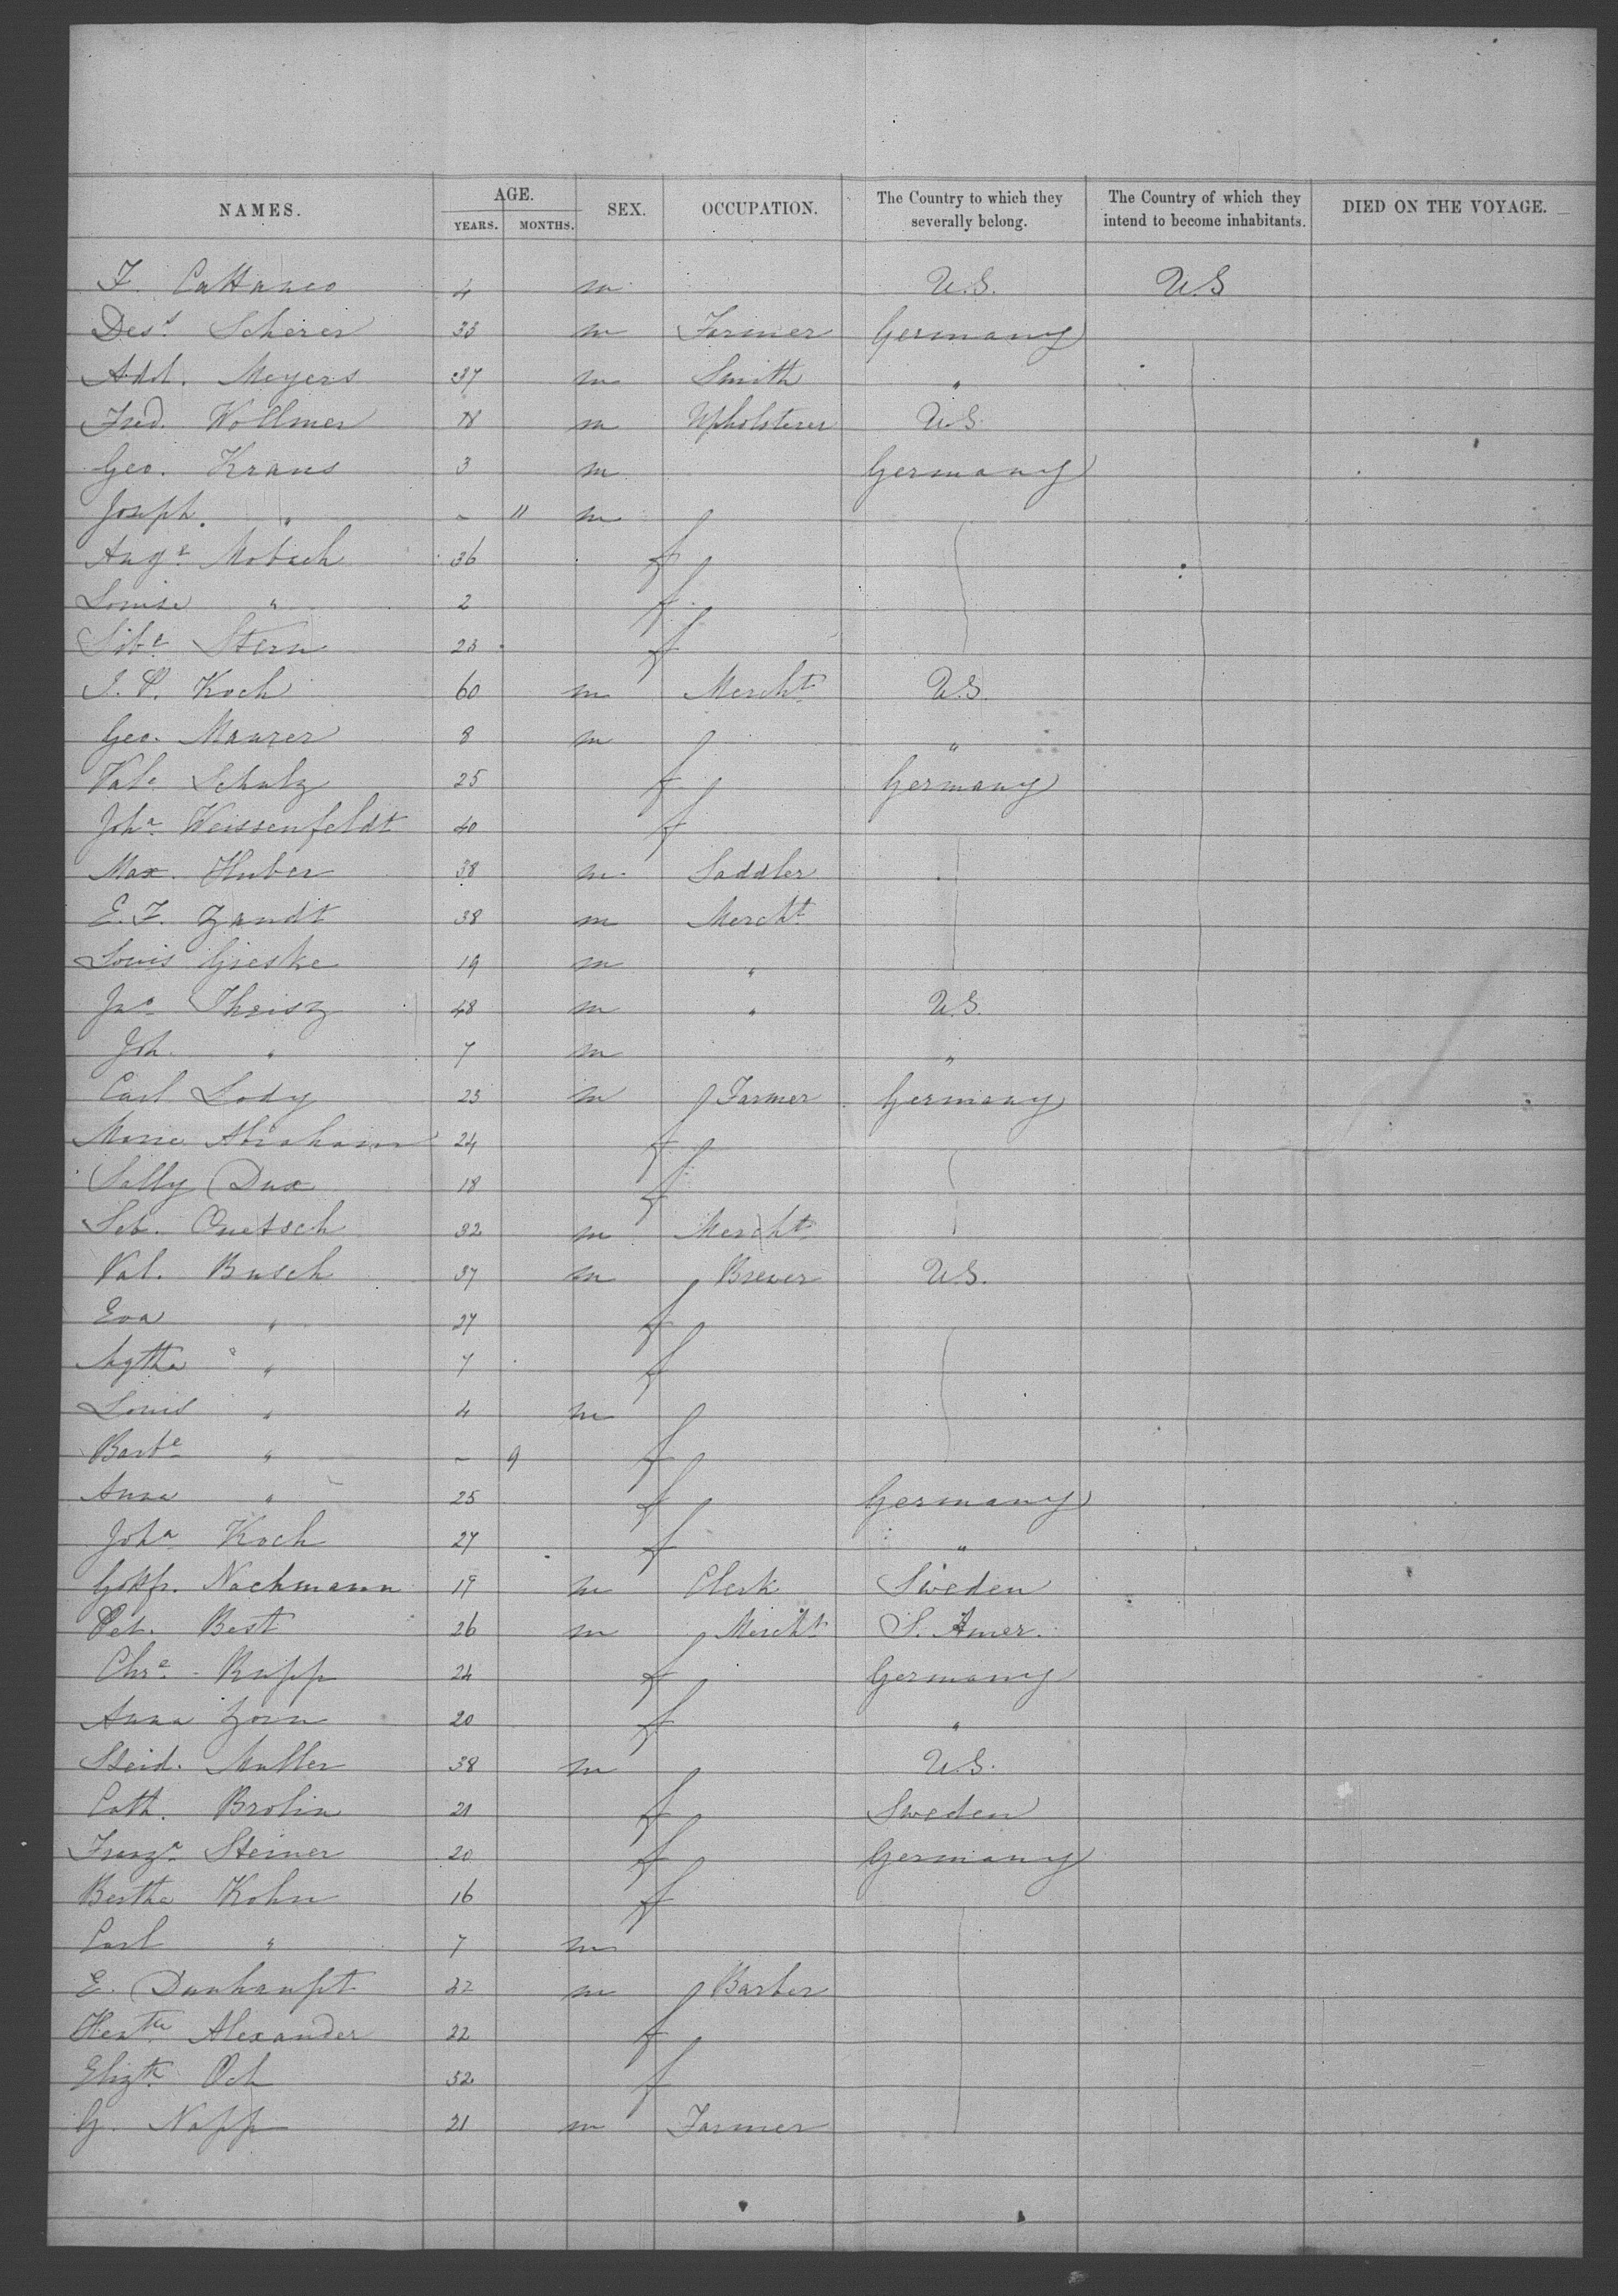 NAMES. AGE. YEARS. MONTHS. SEX. OCCUPATION. The Country to which they severally belong. The Country of which they intend to become inhabitants. DIED ON THE VOYAGE.
F. Cattaneo 4 m U.S. U.S
Des.s Scherer 33 m Farmer Germany
Adol. Meyers 37 m Smith "
Fred. Vollmer 18 m Upholsterer U.S.
Geo. Kraus 3 m Germany
Joseph " - 11 m
Aug.e Mobach 36 f
Louise " 2 f
Sib.e Stern 23 f
J. P. Koch 60 m Mercht U.S.
Geo. Maurer 8 m "
Val.e Schulz 25 f Germany
Joh.a Weissenfeldt 40 f
Max. Huber 38 m Saddler
E. F. Zandt 38 m Mercht
Louis Gieske 19 m "
Jno Theisz 48 m " U.S.
Joh. " 7 m "
Carl Lody 23 m Farmer Germany
Marie Abraham 24 f
Sally Dux 18 f
Seb. Quetsch 32 m Mercht
Val. Busch 37 m Brewer U.S.
Eva " 27 f
Agtha " 7 f
Louis " 4 m
Barb.e " - 9 f
Anna " 25 f Germany
Joh.a Koch 27 f "
Gottfr. Nachmann 19 m Clerk Sweden
Pet. Best 26 m Mercht S. Amer.
Chr.e Rupp 24 f Germany
Anna Zorn 20 f "
Muller 38 m U.S.
Cath. Brolin 21 f Sweden
Franz.a Steiner 20 f Germany
Bertha Kohn 16 f
Carl " 7 m
E. Dunhaupt 22 m Barber
Alexander 22 f
Eliz.th Och 32 f
G. Napp 21 m Farmer